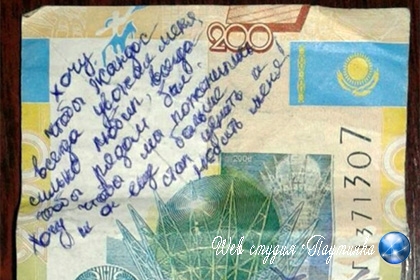 хочу
чтобы Жандос
всегда уважал меня
сильно любил, всегда
чтобы рядом был!
Хочу чтобы мы поженились
и он еще больше
стал ценить и
любить меня!
200
371307
Web студия Паутинка